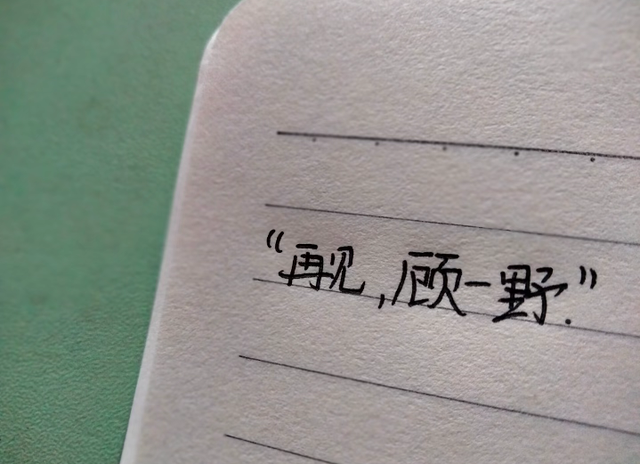 “再见,顾一野.”